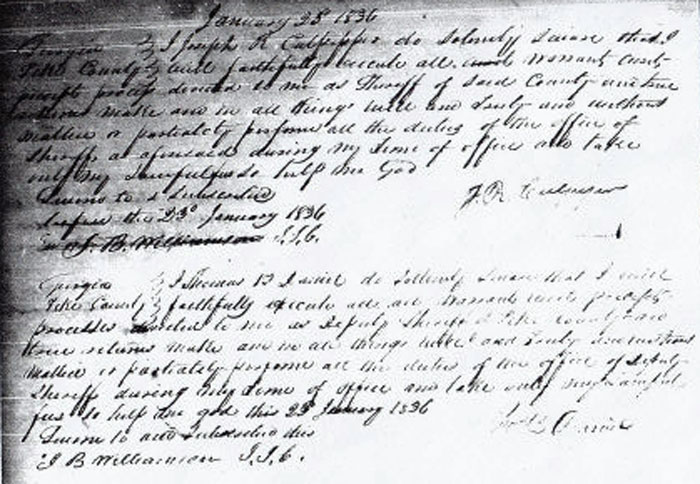 January 23d 1836
Georgia } I Joseph R Culpepper do Solemnly Swear that I
Pike County } will faithfully execute all writs warrants
precepts process directed to me as Sheriff of said County and true
returns make and in all things well and Truly and without
malice or partiality perform all the duties of the office of
Sheriff as aforesaid during my Time of office and take
only my lawful fees So help me God
Sworn to & Subscribed
before me this 23d January 1836
J. B. Williamson J.I.C.
J. R. Culpepper
Georgia } I Thomas B Daniel do Sollemly Swear that I will
Pike County } faithfully execute all warrants writs precepts
processes directed to me as Deputy Sheriff of Pike County and
true returns make and in all things well and Truly and without
malice or partiality perform all the duties of the office of Deputy
Sheriff during my Time of office and take only my lawful
fees So help me god this 23d January 1836
Sworn to and Subscribed this
J B Williamson J.I.C.
Thos B Daniel